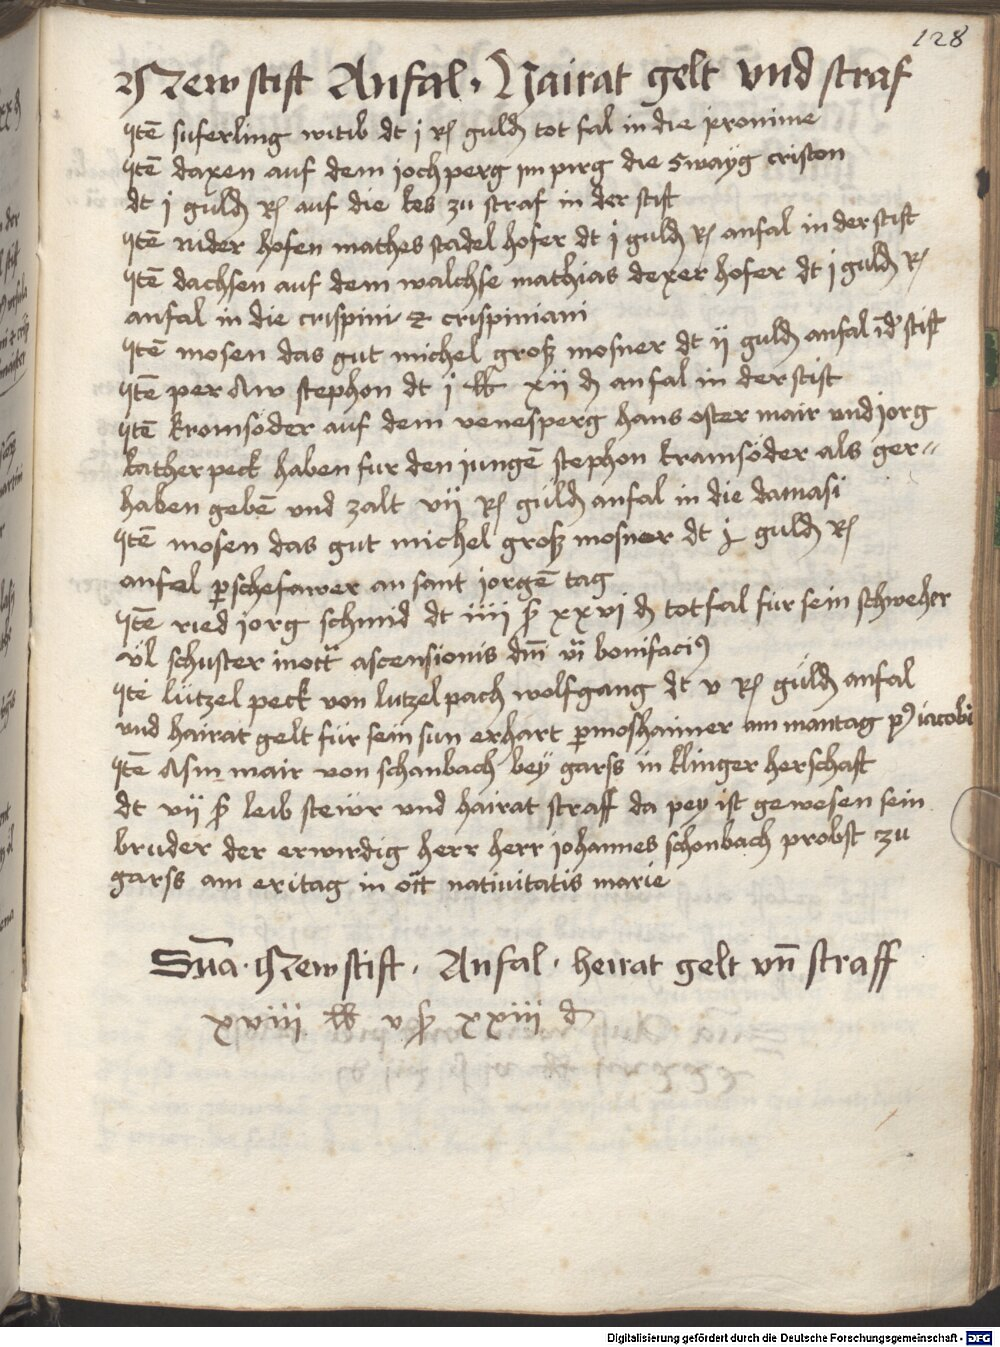 128
Newstift Anfal · Hairat gelt vnd straf
Itē suferling witib dt j R guldn tot fal in die pronime
Itē daxen auf dem jochperg im pirg die swayg criston
dt j guldn R auf die kes zu straf in der stift
Itē nider hofen mathes stadel hofer dt j guldn R anfal in der stift
Itē dachsen auf dem walchse mathias dexer hofer dt j guldn R
anfal in die crispini et crispiniani
Itē mosen das gut michel groß mosner dt ij guldn anfal i d' stift
Itē per Aw stephon dt j lb xij d anfal in der stift
Itē kromsöder auf dem venesperg hans oster mair vnd jorg
katherpeck haben fur den jungē stephon kramsöder als ger〃
haben gebē vnd zalt vij R guldn anfal in die damasi
Itē mosen das gut michel groß mosner dt j guldn R
anfel pschefarer an sant jorgē tag
Itē ried jorg schmid dt iiij ß xxvj d totfal für sein schweher
vl schuster in octa ascensionis dni vi bonifacij
Itē lützel peck von lutzelpach wolfgang dt v R guldn anfal
vnd hairat gelt für sein sun erhart pmoshaimer am montag p9 iacobi
Itē Asm mair von schanbach bey garss in klinger herschaft
dt vij ß leib steiwr vnd hairat straff da pey ist gewesen sein
bruder der erwirdig herr herr johannes schonbach probst zu
garss am eritag in oct nativitatis marie
Sūa · Newstift · Anfal · heirat gelt vn̄ straff
xviij lb v ß xxiij d
Digitalisierung gefördert durch die Deutsche Forschungsgemeinschaft - DFG